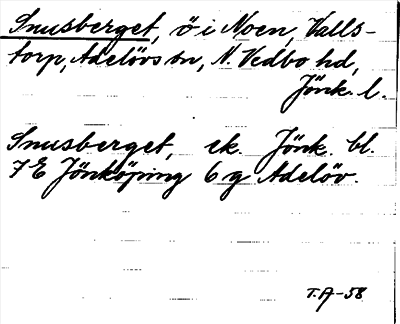 Snusberget, ö i Noen, Valls-
torp, Adelövs sn, N. Vedbo hd,
Jönk. l.
Snusberget, ek. Jönk. bl.
7 E Jönköping 6 g Adelöv.
T.A-58